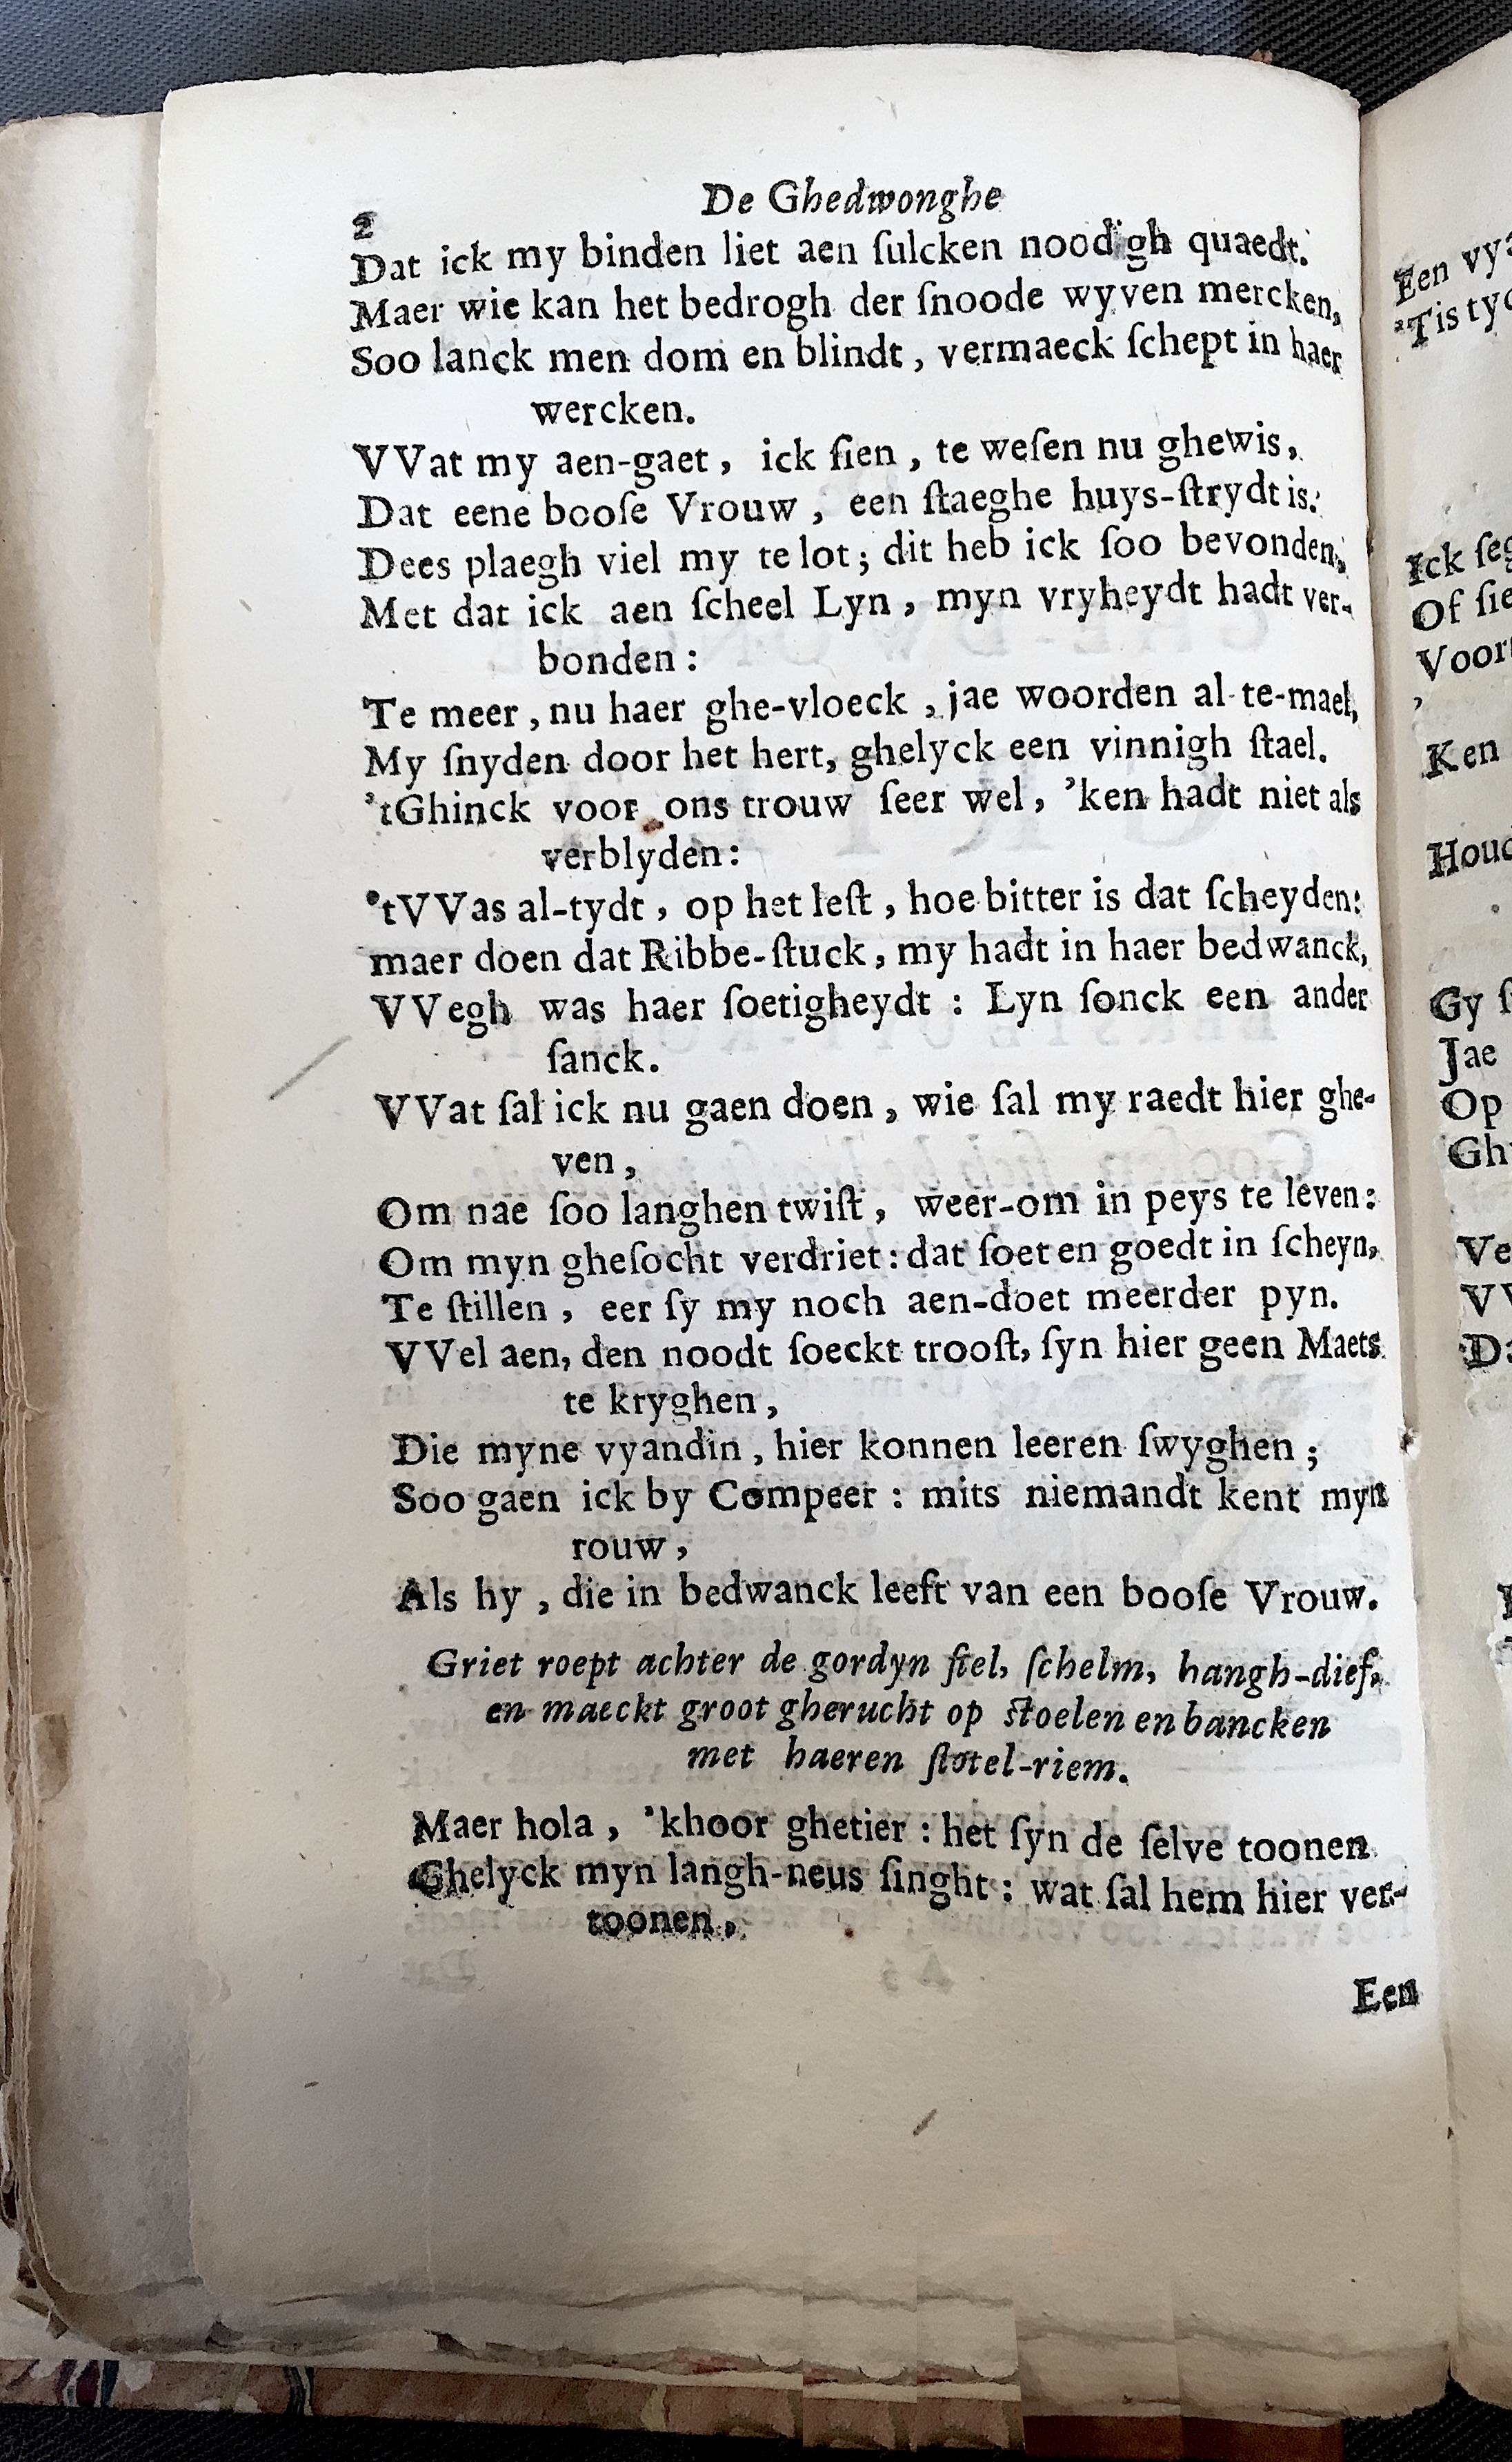 De Ghedwonghe
2
Dat ick my binden liet aen ſulcken noodigh quaedt.
Maer wie kan het bedrogh der ſnoode wyven mercken,
Soo lanck men dom en blindt, vermaeck ſchept in haer
wercken.
VVat my aen-gaet, ick ſien, te weſen nu ghewis,
Dat eene booſe Vrouw, een ſtaeghe huys-ſtrydt is:
Dees plaegh viel my te lot; dit heb ick ſoo bevonden,
Met dat ick aen ſcheel Lyn, myn vryheydt hadt ver-
bonden:
Te meer, nu haer ghe-vloeck, jae woorden al-te-mael,
My ſnyden door het hert, ghelyck een vinnigh ſtael.
'tGhinck voor ons trouw ſeer wel, 'ken hadt niet als
verblyden:
'tVVas al-tydt, op het leſt, hoe bitter is dat ſcheyden:
maer doen dat Ribbe-ſtuck, my hadt in haer bedwanck,
VVegh was haer ſoetigheydt: Lyn ſonck een ander
ſanck.
VVat ſal ick nu gaen doen, wie ſal my raedt hier ghe-
ven,
Om nae ſoo langhen twiſt, weer-om in peys te leven:
Om myn gheſocht verdriet: dat ſoet en goedt in ſcheyn,
Te ſtillen, eer ſy my noch aen-doet meerder pyn.
VVel aen, den noodt ſoeckt trooſt, ſyn hier geen Maets
te kryghen,
Die myne vyandin, hier konnen leeren ſwyghen;
Soo gaen ick by Compeer: mits niemandt kent myn
rouw,
Als hy, die in bedwanck leeft van een booſe Vrouw.
Griet roept achter de gordyn fiel, ſchelm, hangh-dief,
en maeckt groot gherucht op ſtoelen en bancken
met haeren ſlotel-riem.
Maer hola, 'khoor ghetier: het ſyn de ſelve toonen
Ghelyck myn langh-neus ſinght: wat ſal hem hier ver-
toonen,
Een
Een
'Tis
Ick
Of
Ken
Gy
Jae
Op